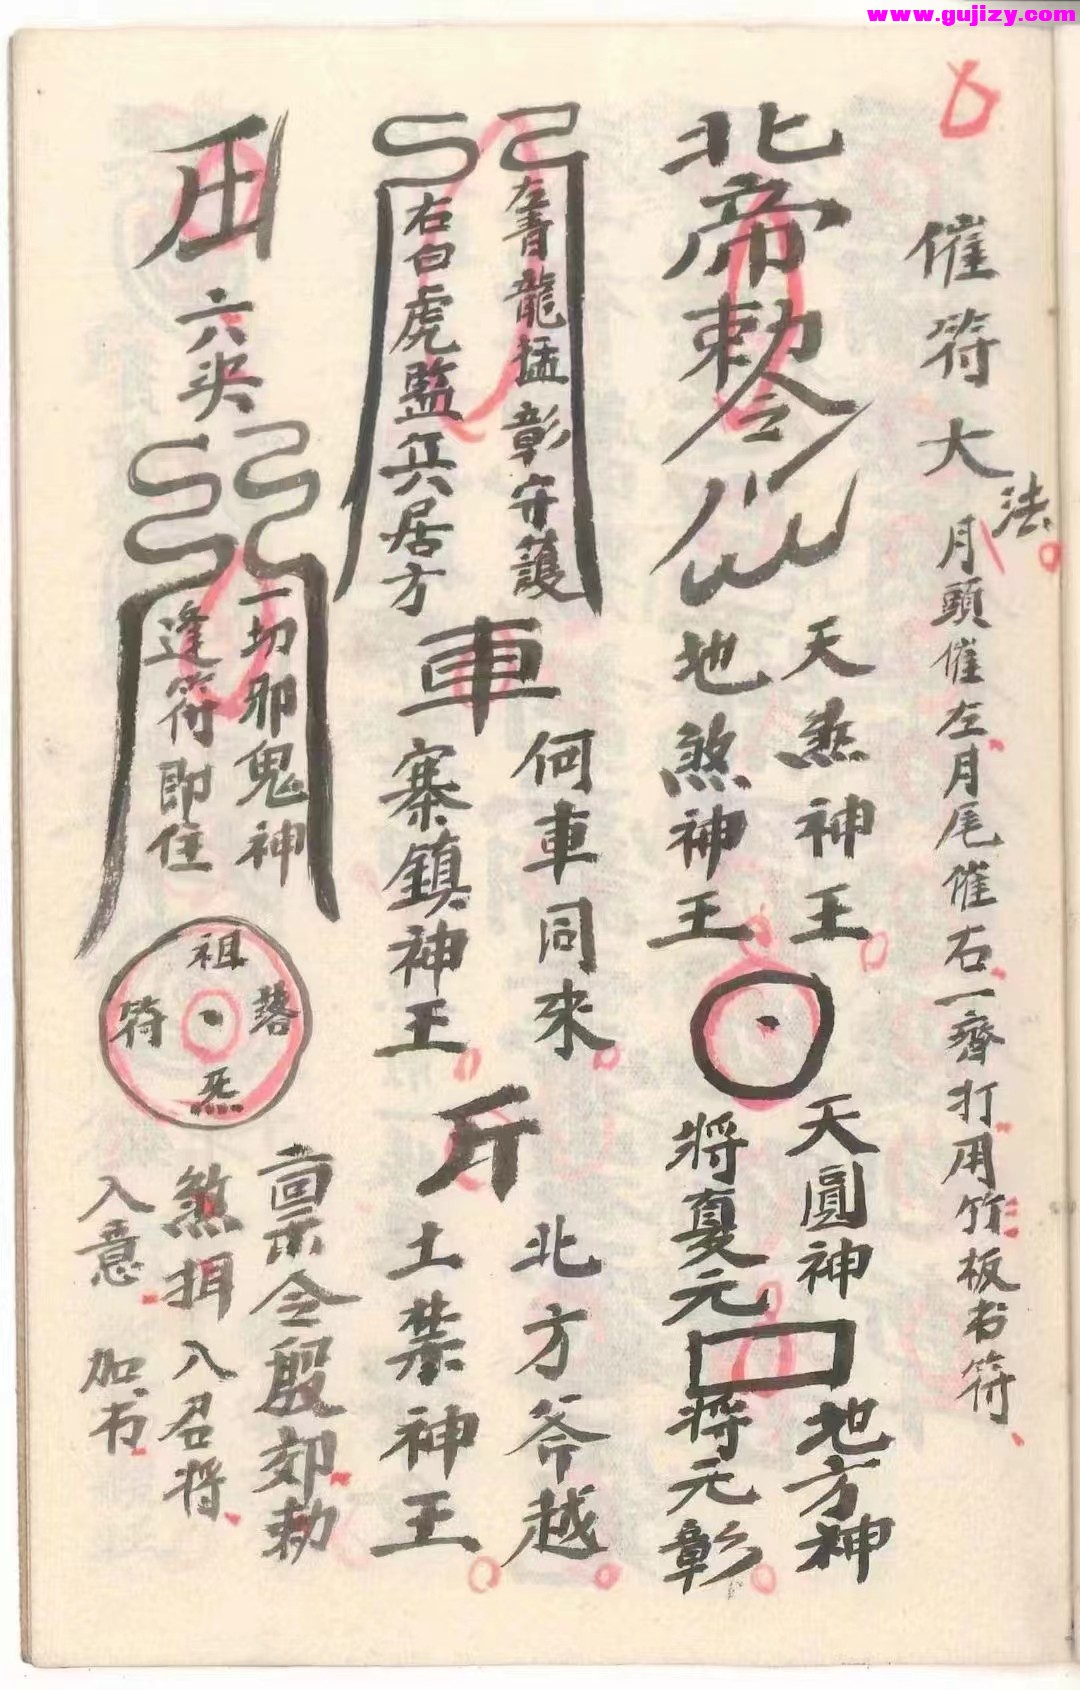 www.gujizy.com
催符大法
月頭催左月尾催右一齊打用竹板书符
北帝敕令
天煞神王
地煞神王
天圓神
將夏元
地方神
將元彰
左青龍猛彰守護
右白虎監兵居方
車
何車同來
寨鎮神王
斤
北方斧越
土禁神王
六
一切邪鬼神
逢符即住
祖
符
禀令殷郊勅
煞 入召将
入意 加书